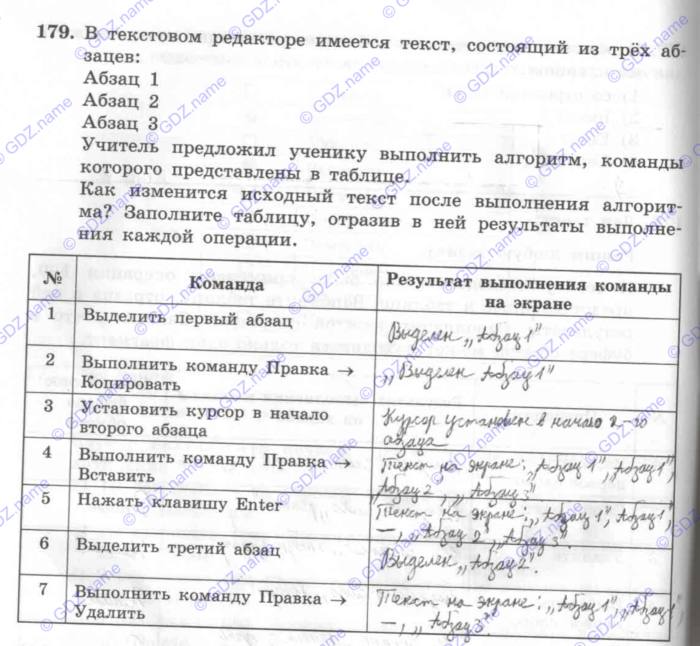 179. В текстовом редакторе имеется текст, состоящий из трёх аб-
зацев:
Абзац 1
Абзац 2
Абзац 3
Учитель предложил ученику выполнить алгоритм, команды
которого представлены в таблице.
Как изменится исходный текст после выполнения алгорит-
ма? Заполните таблицу, отразив в ней результаты выполне-
ния каждой операции.
№ Команда Результат выполнения команды
на экране
1 Выделить первый абзац Выделен „Абзац 1"
2 Выполнить команду Правка →
Копировать „Выделен Абзац 1"
3 Установить курсор в начало
второго абзаца Курсор установлен в начало 2-го
абзаца
4 Выполнить команду Правка →
Вставить Текст на экране: „Абзац 1", „Абзац 1",
„Абзац 2", „Абзац 3"
5 Нажать клавишу Enter Текст на экране: „Абзац 1", „Абзац 1",
—, „Абзац 2", „Абзац 3"
6 Выделить третий абзац Выделен „Абзац 2".
7 Выполнить команду Правка →
Удалить Текст на экране: „Абзац 1", „Абзац 1",
—, „Абзац 3".
© GDZ.name